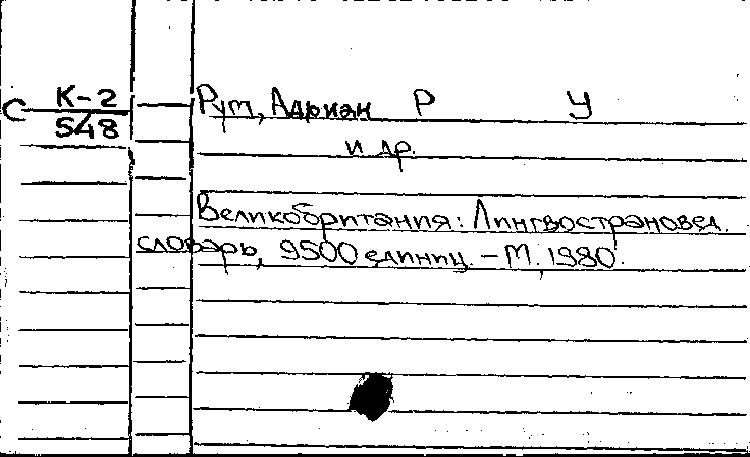 С К-2
548
Рум, Адриан Р У
и др.
Великобритания: Лингвострановед.
словарь, 9500 единиц. - М., 1980.